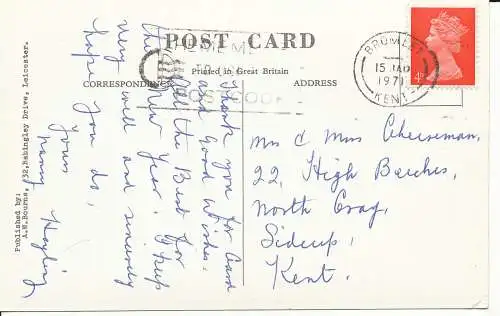 POST CARD
Printed in Great Britain
CORRESPONDENCE
ADDRESS
BROMLEY
15 JAN
1971
KENT
4D
REMEMBER
Thank you for Card
and Good Wishes.
All the Best for
the New Year. I keep
very well and sincerely
hope you do,
Yours
Hayling
Mrs & Miss Cheeseman,
22, High Beeches,
North Cray,
Sidcup,
Kent.
Published by:
A.M.Bourne, 232, Babingley Drive, Leicester.